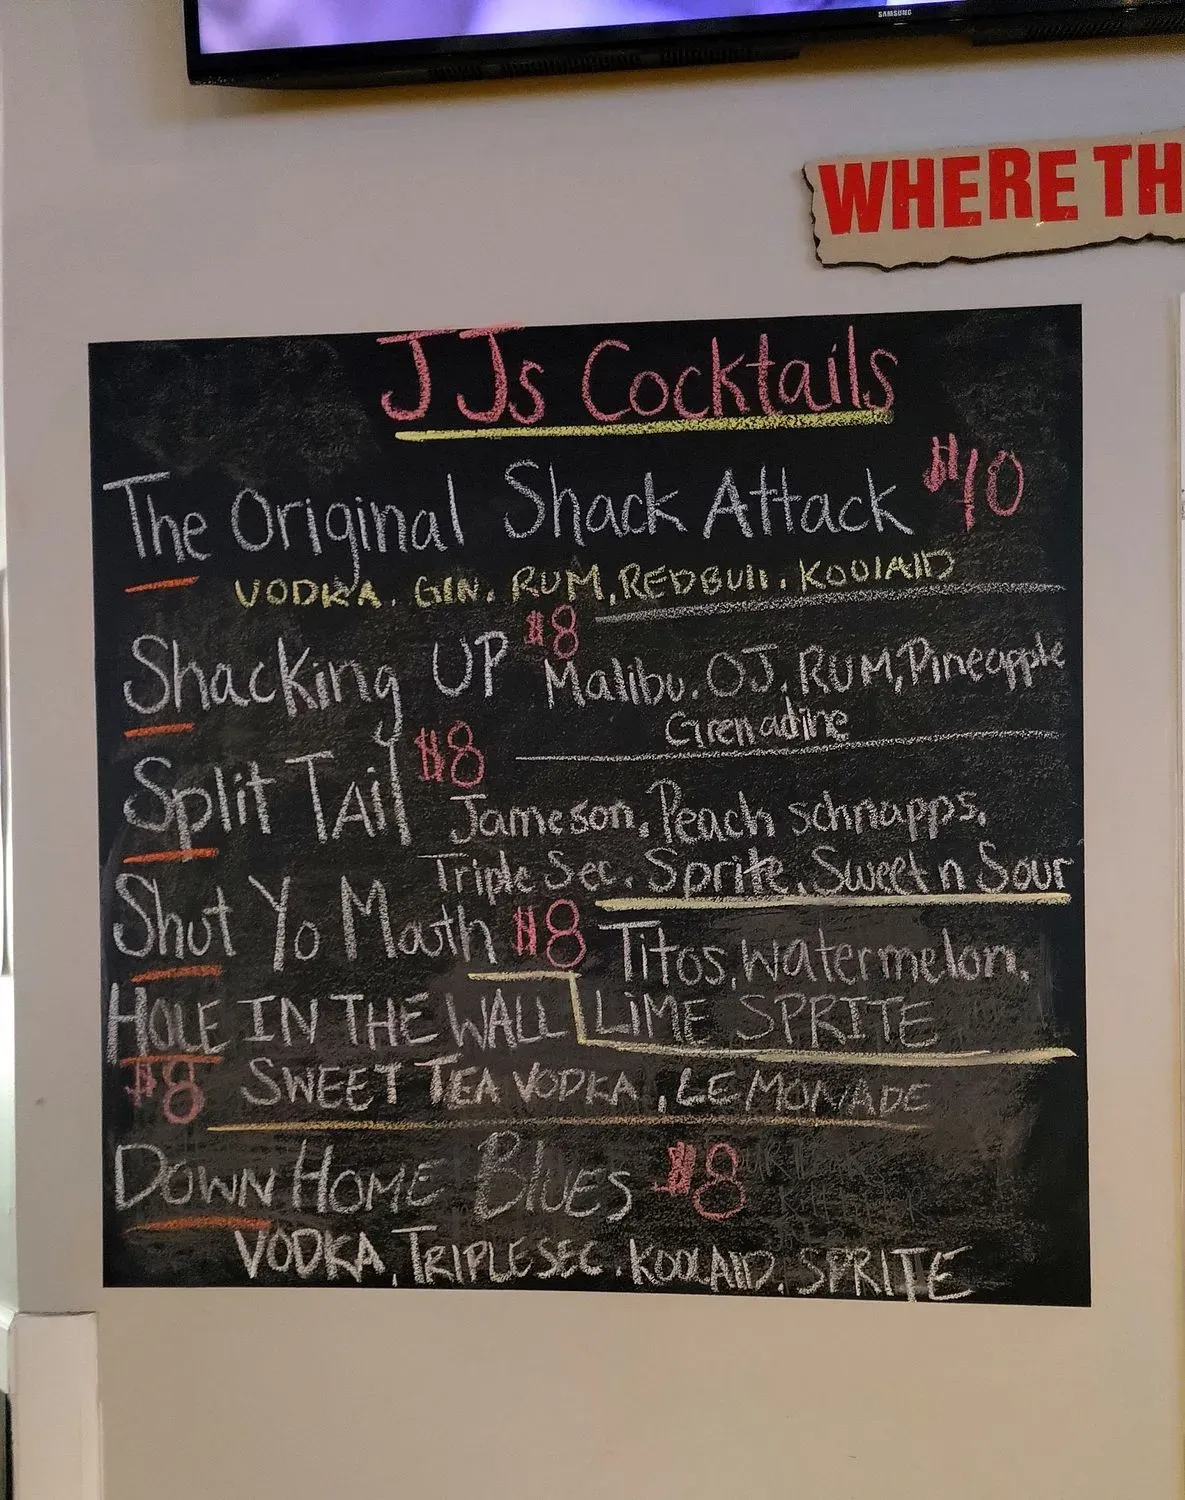 SAMSUNG
WHERE TH
JJs Cocktails
The Original Shack Attack $10
VODKA. GIN. RUM, REDBUll. KOOlAID
Shacking UP $8 Malibu. OJ. RUM, Pineapple
Grenadine
Split TAil $8
Jameson, Peach schnapps,
Triple Sec. Sprite. Sweet n Sour
Shut Yo Mouth $8 Titos, Watermelon,
LiME SPRITE
HOLE IN THE WALL
$8 SWEET TEA VODKA, LEMONADE
DOWN HOME BlUES $8
VODKA, TRIPLE SEC. KOOLAID. SPRITE